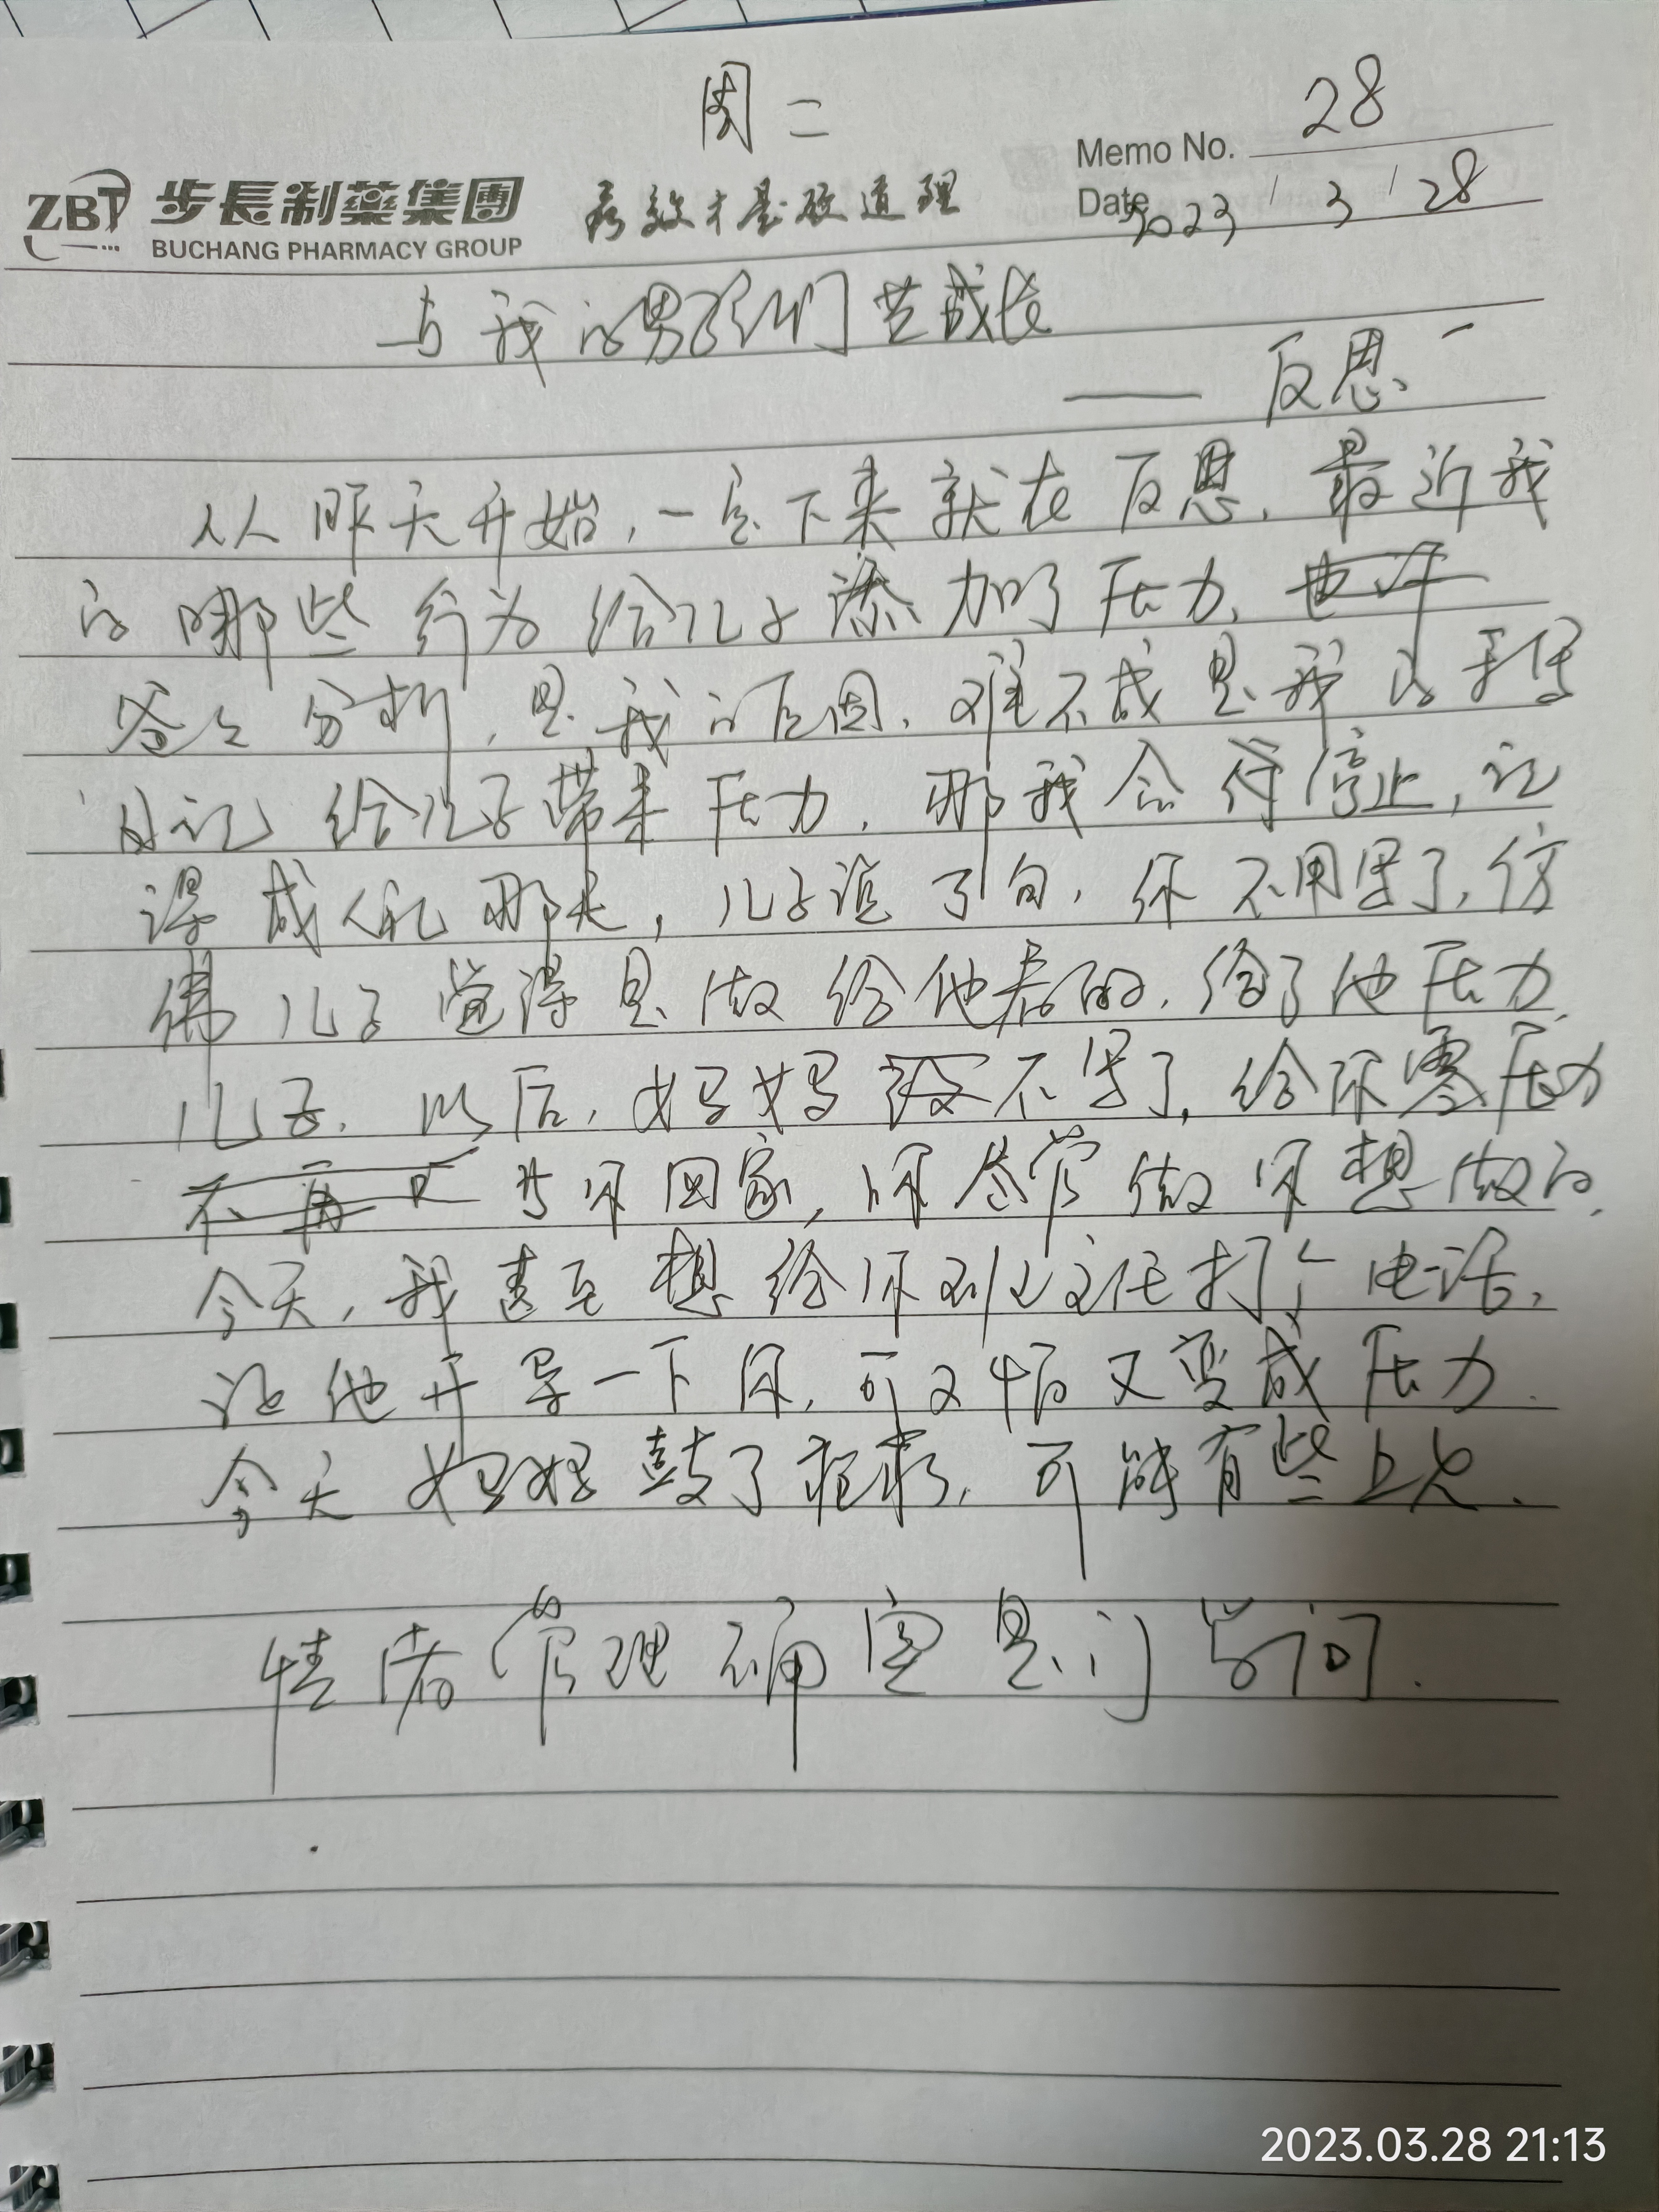 周二
Memo No. 28
ZBT 步長制藥集團 疗效才是硬道理
BUCHANG PHARMACY GROUP
Date 2023 / 3 / 28
与我的男孩们共成长
—— 反思一
从昨天开始,一定下来就在反思,最近我
的哪些行为给儿子添加了压力,也许
爸爸分析,是我的原因,难不成是我的手写
日记给儿子带来压力,那我会停止,记
得成人礼那天,儿子说了句,你不用写了,仿
佛儿子觉得是做给他看的,给了他压力,
儿子,以后,妈妈不写了,给你零压力
不再 当你回家,你尽管做你想做的,
今天,我甚至想给你刘主任打个电话,
让他开导一下你,可又怕又变成压力.
今天妈妈鼓了,可能有些上火.
情绪管理确实是门学问.
2023.03.28 21:13